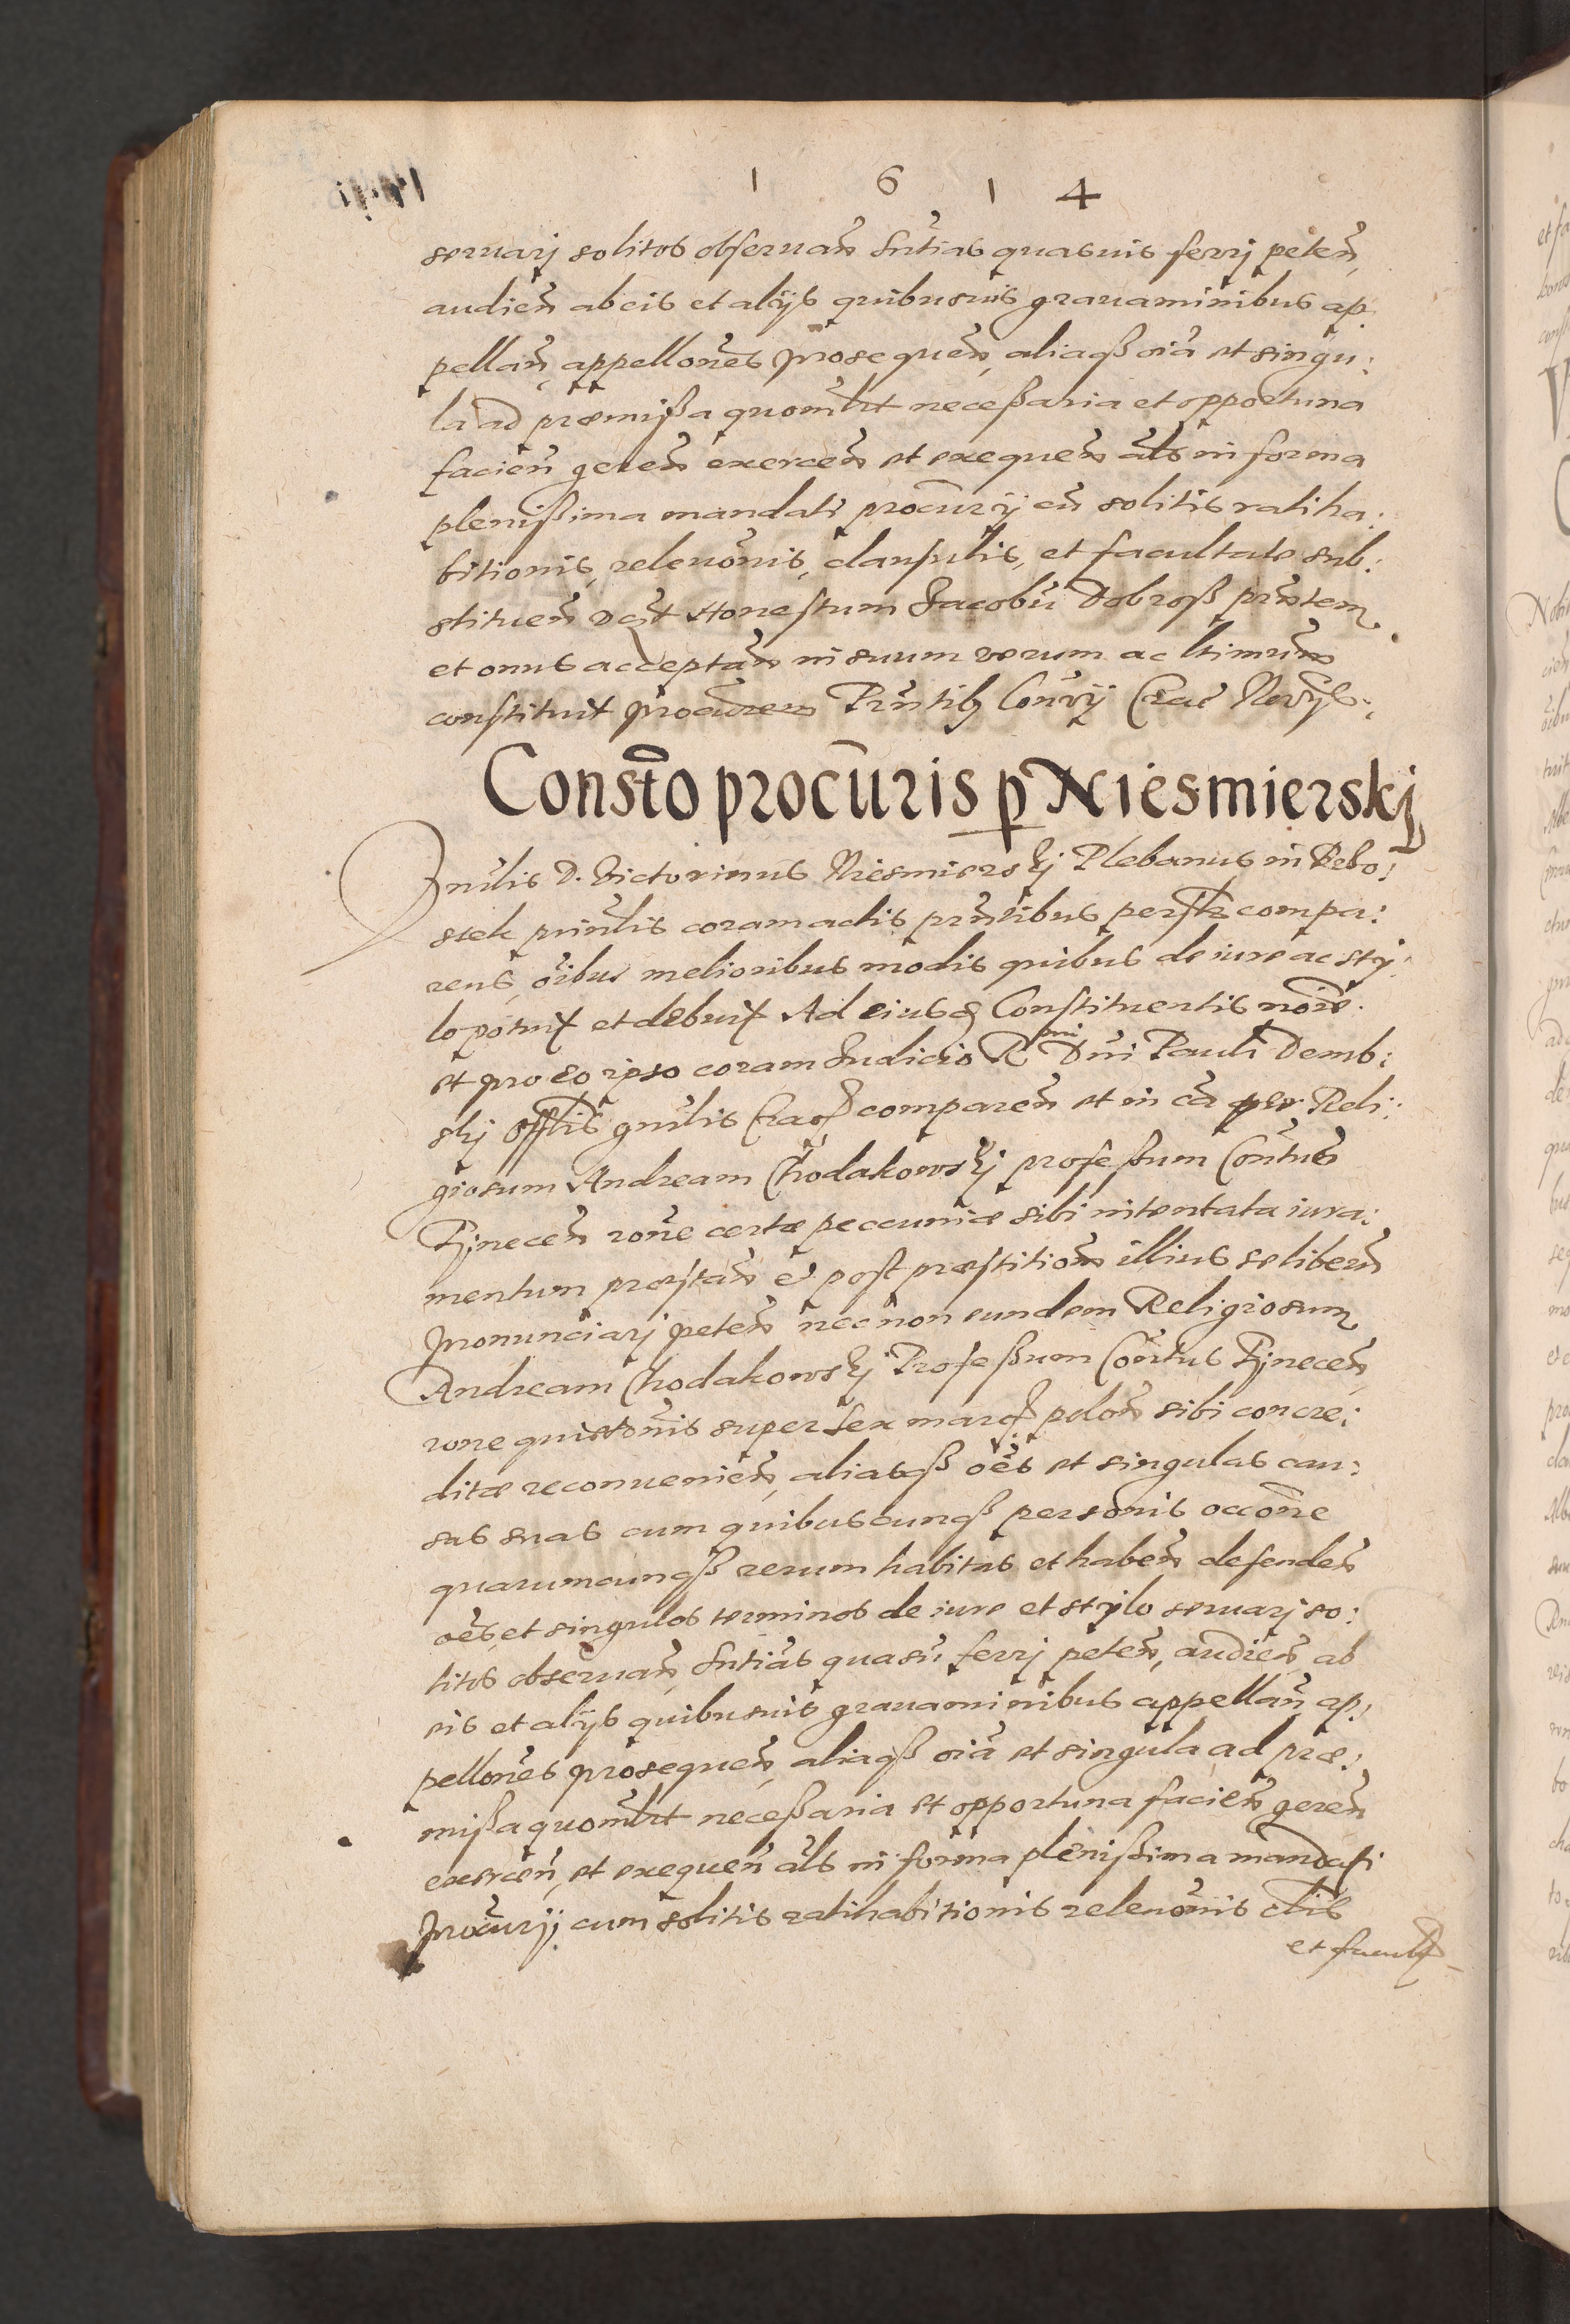 1 6 1 4
seruarj solitos obseruan̄ Sn̄tias quasuis ferrj peten̄,
audien̄ ab eis et alijs quibusuis grauaminibus ap:
pellan̄, appellones prosequen̄, aliaqß oīa et singu:
la ad præmißa quomlt neceßaria et opportuna
facien̄ geren̄ exercen̄ et exequen̄ als in forma
plenißima mandati procurij cū solitis ratiha:
bitionis, releuonis, clausulis, et facultate sub:
stituen̄ Honestum Jacobū Dobroß prntem
et onus acceptan̄ in suum verum ac ltimum
constituit procurem Prntibq
Consto procuris p Niesmierskj
Vnlis D. Victorinus Niesmierskj Plebanus in
coram actis prntibus perslr compa:
rens, oibus melioribus modis quibus de iure ac sty:
lo potuit et debuit Ad eiusd Constituentis noīe.
et pro eo ipso coram Judicio R dni Dni Pauli Demb:
skj offlis gnlis Crac comparen̄ et in cā per Reli:
giosum Andream Chodakowskj profeßum Contus
Tynecen̄ rone certæ peccuniæ sibi intentata iura:
mentum præstan̄ et post præstitiom illius se liberū
pronunciarj peten̄ necnon eundem Religiosum
Andream Chodakowskj Profeßum Contus Tynecen̄,
rone quietonis super sex marc polon̄ sibi concre:
ditæ reconuenien̄, aliasqß oēs et singulas cau:
sas suas cum quibuscunqß personis occone
quarumcunqß rerum habitas et haben̄ defenden̄
oēs et singulos terminos de iure et stylo seruarj so:
litos obseruan̄, Sntias quasu ferrj peten̄, audien̄ ab
eis et alijs quibusuis grauaminibus appellan̄ ap:
pellones prosequen̄, aliaqß oīa et singula ad præ:
mißa quomlt neceßaria et opportuna facien̄ geren̄
exercen̄, et exequen̄ als in forma plenißima mandati
procurij cum solitis ratihabitionis releuonis clis
et facult